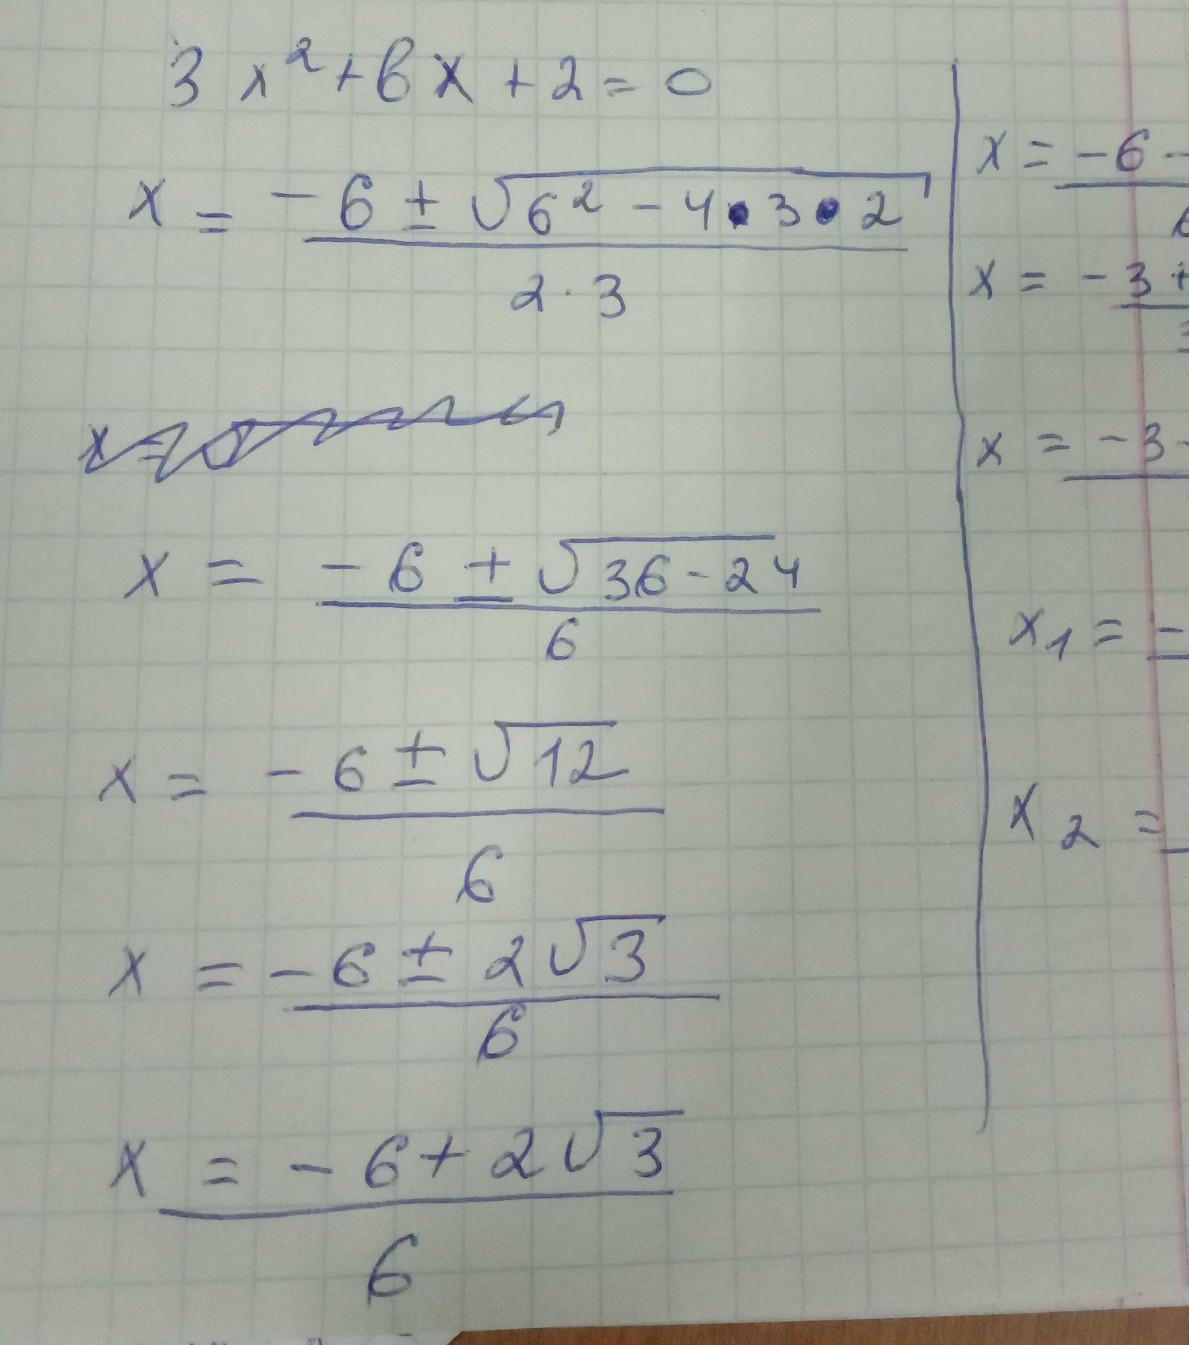 3x²+6x+2=0
x = -6 ± √6² - 4•3•2
2·3
x = -6 ± √36-24
6
x = -6 ± √12
6
x = -6 ± 2√3
6
x = -6 + 2√3
6
x = -6 -
6
x = -3 +
3
x = -3 -
x₁ = -
x₂ =